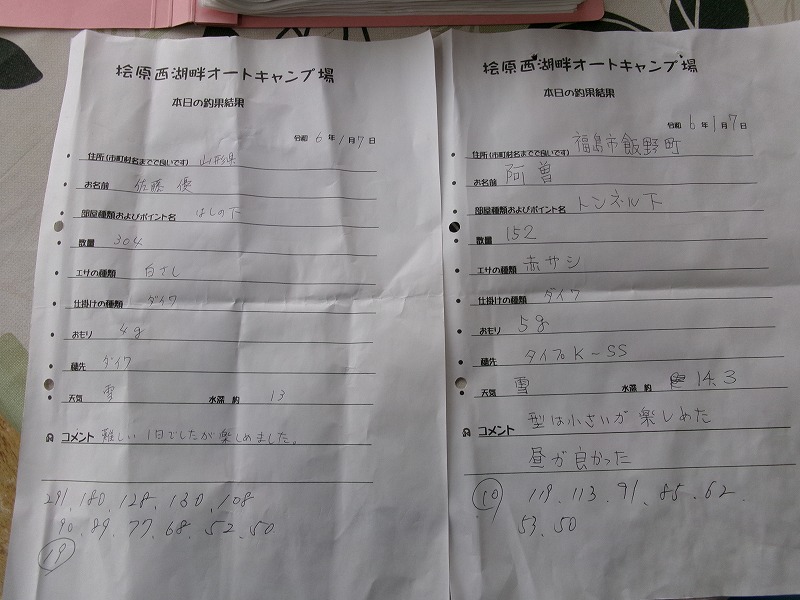 桧原西湖畔オートキャンプ場
本日の釣果結果
令和 6 年 1 月 7 日
住所(市町村名までで良いです) 山形県
お名前 佐藤 優
部屋種類およびポイント名 はしの下
数量 304
エサの種類 白さし
仕掛けの種類 ダイワ
おもり 4g
穂先 ダイワ
天気 雪 水深 約 13
コメント 難しい1日でしたが楽しめました。
291、180、128、130、108
90、89、77、68、52、50
19
桧原西湖畔オートキャンプ場
本日の釣果結果
令和 6 年 1 月 7 日
住所(市町村名までで良いです) 福島市飯野町
お名前 阿曽
部屋種類およびポイント名 トンネル下
数量 152
エサの種類 赤サシ
仕掛けの種類 ダイワ
おもり 5g
穂先 タイプK-SS
天気 雪 水深 約 14.3
コメント 型は小さいが楽しめた
昼が良かった
10 119、113、91、85、62、
53、50